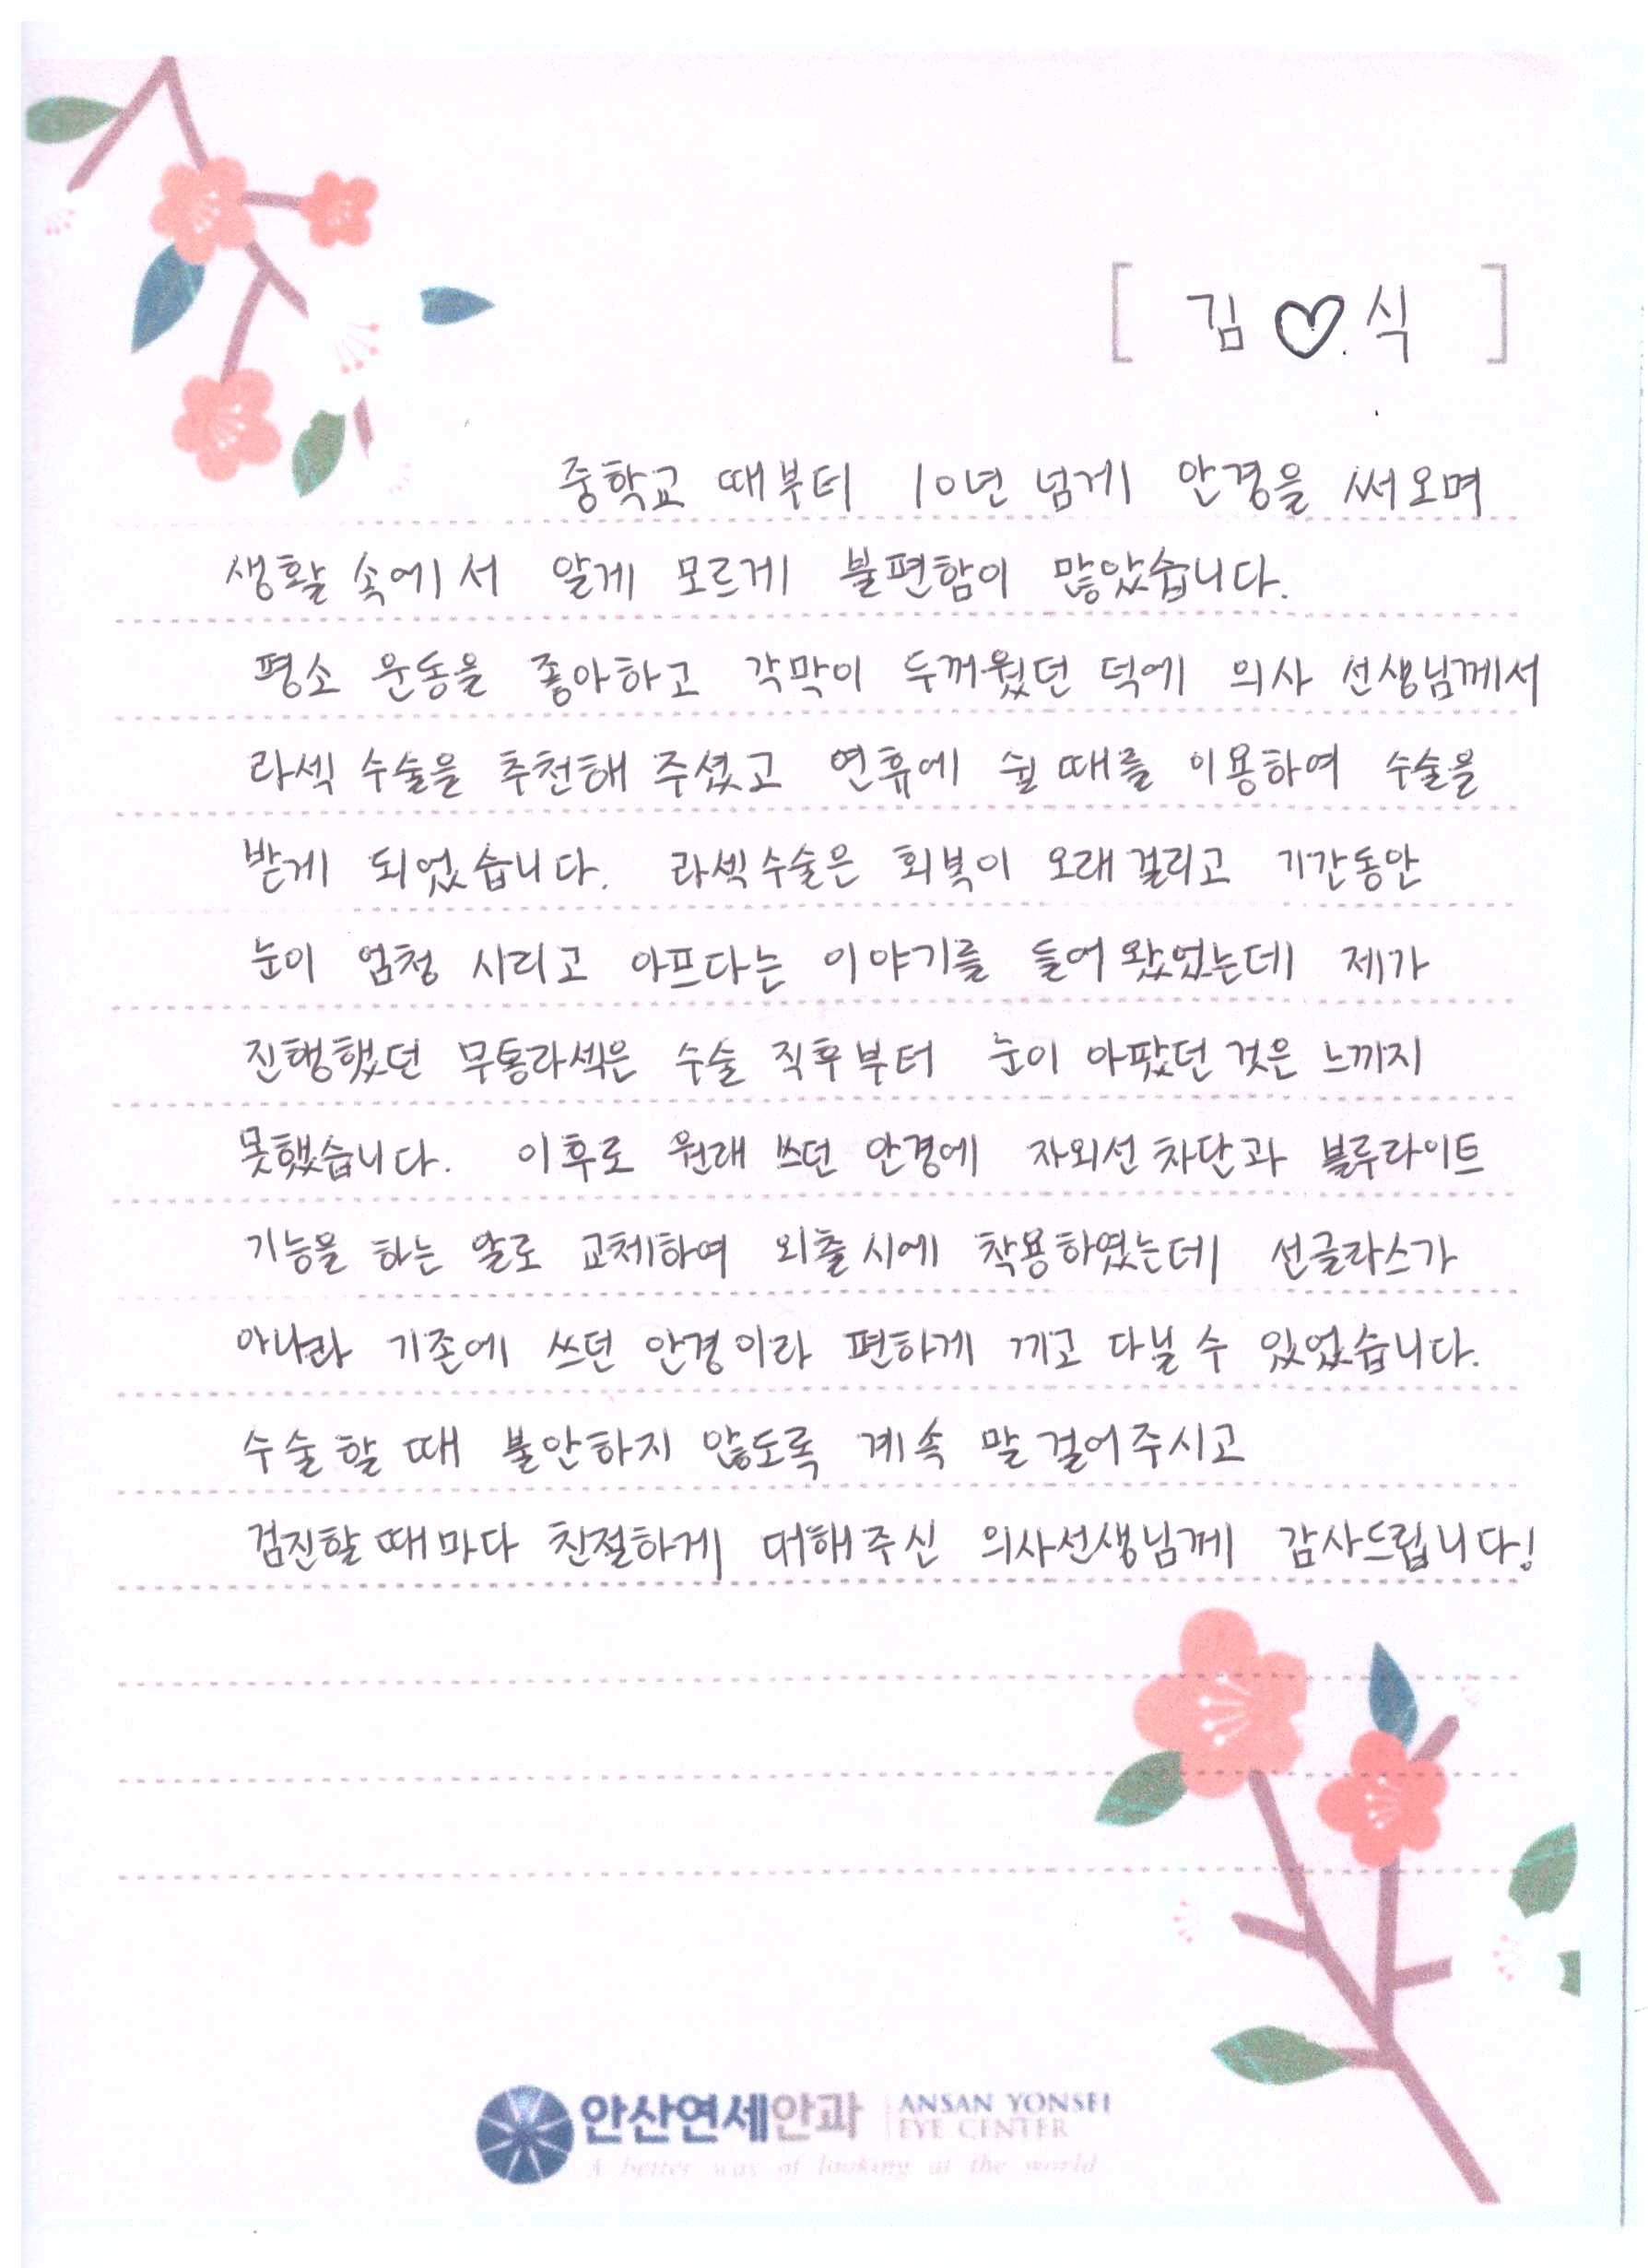 [ 김♡식 ]
중학교 때부터 10년 넘게 안경을 써오며
생활 속에서 알게 모르게 불편함이 많았습니다.
평소 운동을 좋아하고 각막이 두꺼웠던 덕에 의사 선생님께서
라섹 수술을 추천해 주셨고 연휴에 쉴 때를 이용하여 수술을
받게 되었습니다. 라섹수술은 회복이 오래 걸리고 기간동안
눈이 엄청 시리고 아프다는 이야기를 들어왔었는데 제가
진행했던 무통라섹은 수술 직후부터 눈이 아팠던 것은 느끼지
못했습니다. 이후로 원래 쓰던 안경에 자외선 차단과 블루라이트
기능을 하는 알로 교체하여 외출시에 착용하였는데 선글라스가
아니라 기존에 쓰던 안경이라 편하게 끼고 다닐 수 있었습니다.
수술할 때 불안하지 않도록 계속 말 걸어주시고
검진할 때마다 친절하게 대해주신 의사선생님께 감사드립니다!
안산연세안과 ANSAN YONSEI
EYE CENTER
A better way of looking at the world